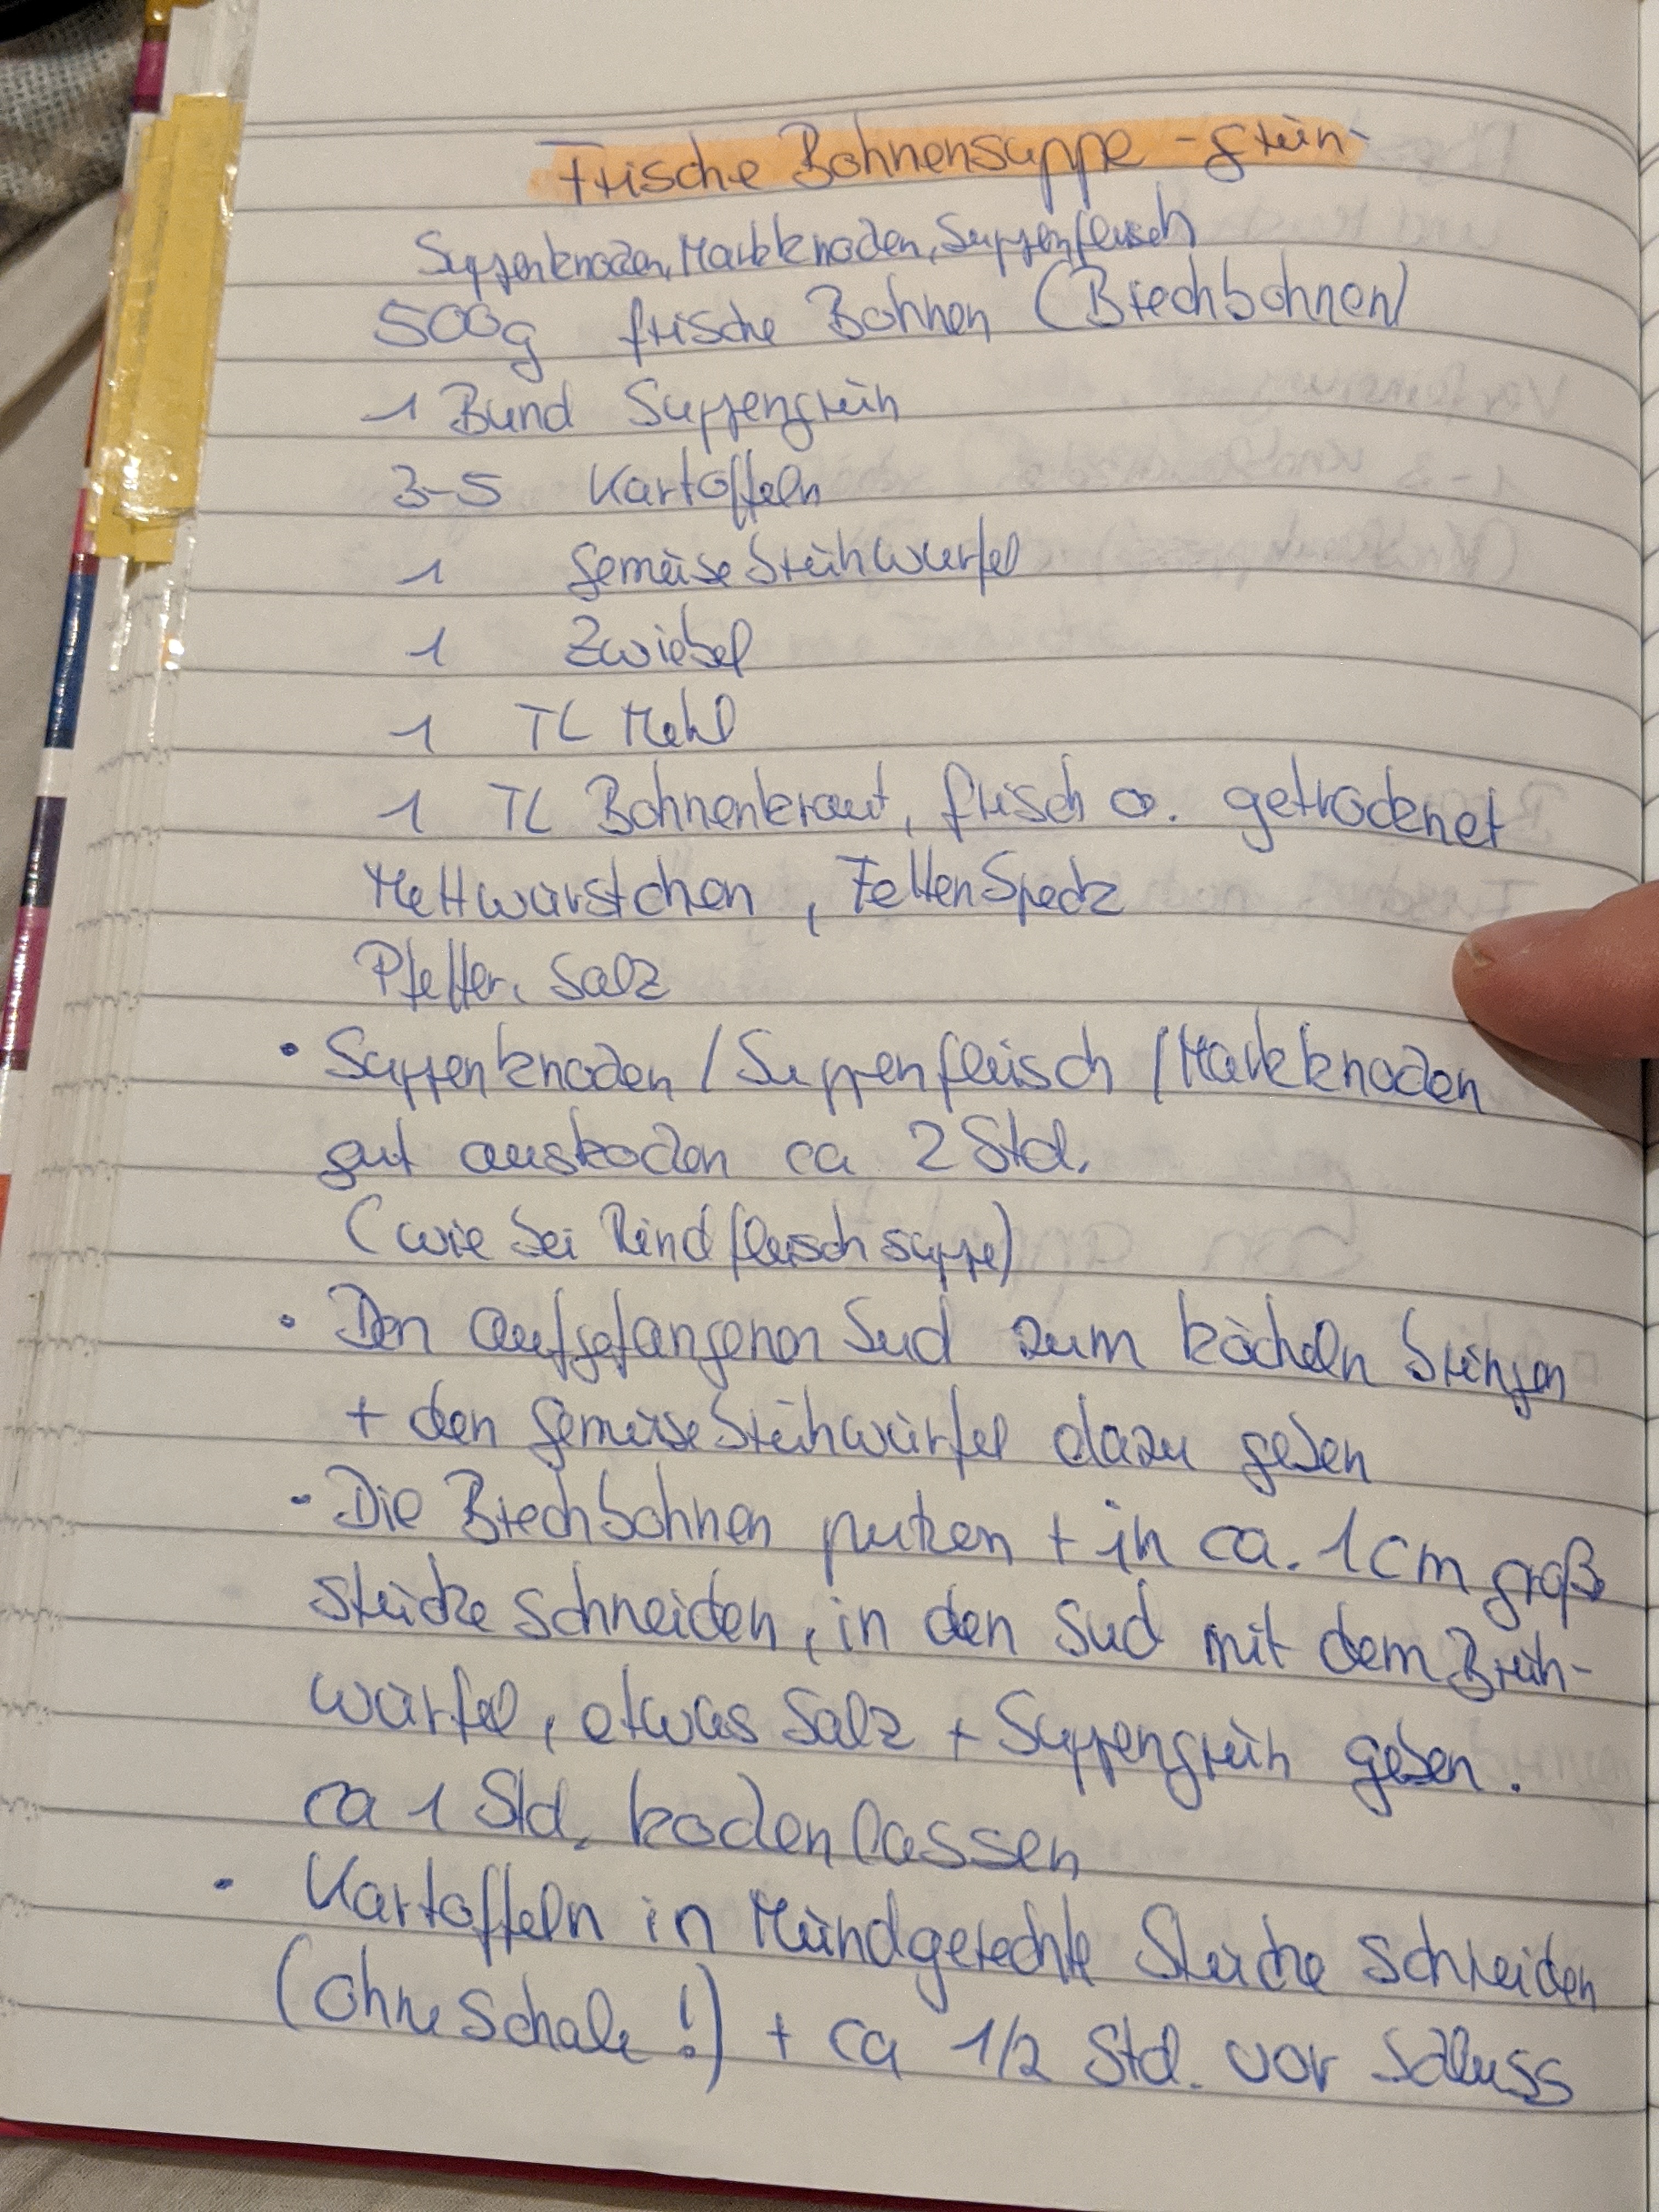 Frische Bohnensuppe - grün -
Suppenknochen, Markknochen, Suppenfleisch
500g frische Bohnen (Brechbohnen)
1 Bund Suppengrün
3-5 Kartoffeln
1 Gemüsebrühwürfel
1 Zwiebel
1 TL Mehl
1 TL Bohnenkraut, frisch o. getrocknet
Mettwürstchen, Fetten Speck
Pfeffer, Salz
• Suppenknochen / Suppenfleisch / Markknochen
gut auskochen ca 2 Std.
(wie bei Rindfleischsuppe)
• Den aufgefangenen Sud zum köcheln bringen
+ den Gemüsebrühwürfel dazu geben
- Die Brechbohnen putzen + in ca. 1cm große
Stücke schneiden, in den Sud mit dem Brüh-
würfel, etwas Salz + Suppengrün geben.
ca 1 Std. kochen lassen
• Kartoffeln in Mundgerechte Stücke schneiden
(ohne Schale!) + ca 1/2 Std. vor Schluss